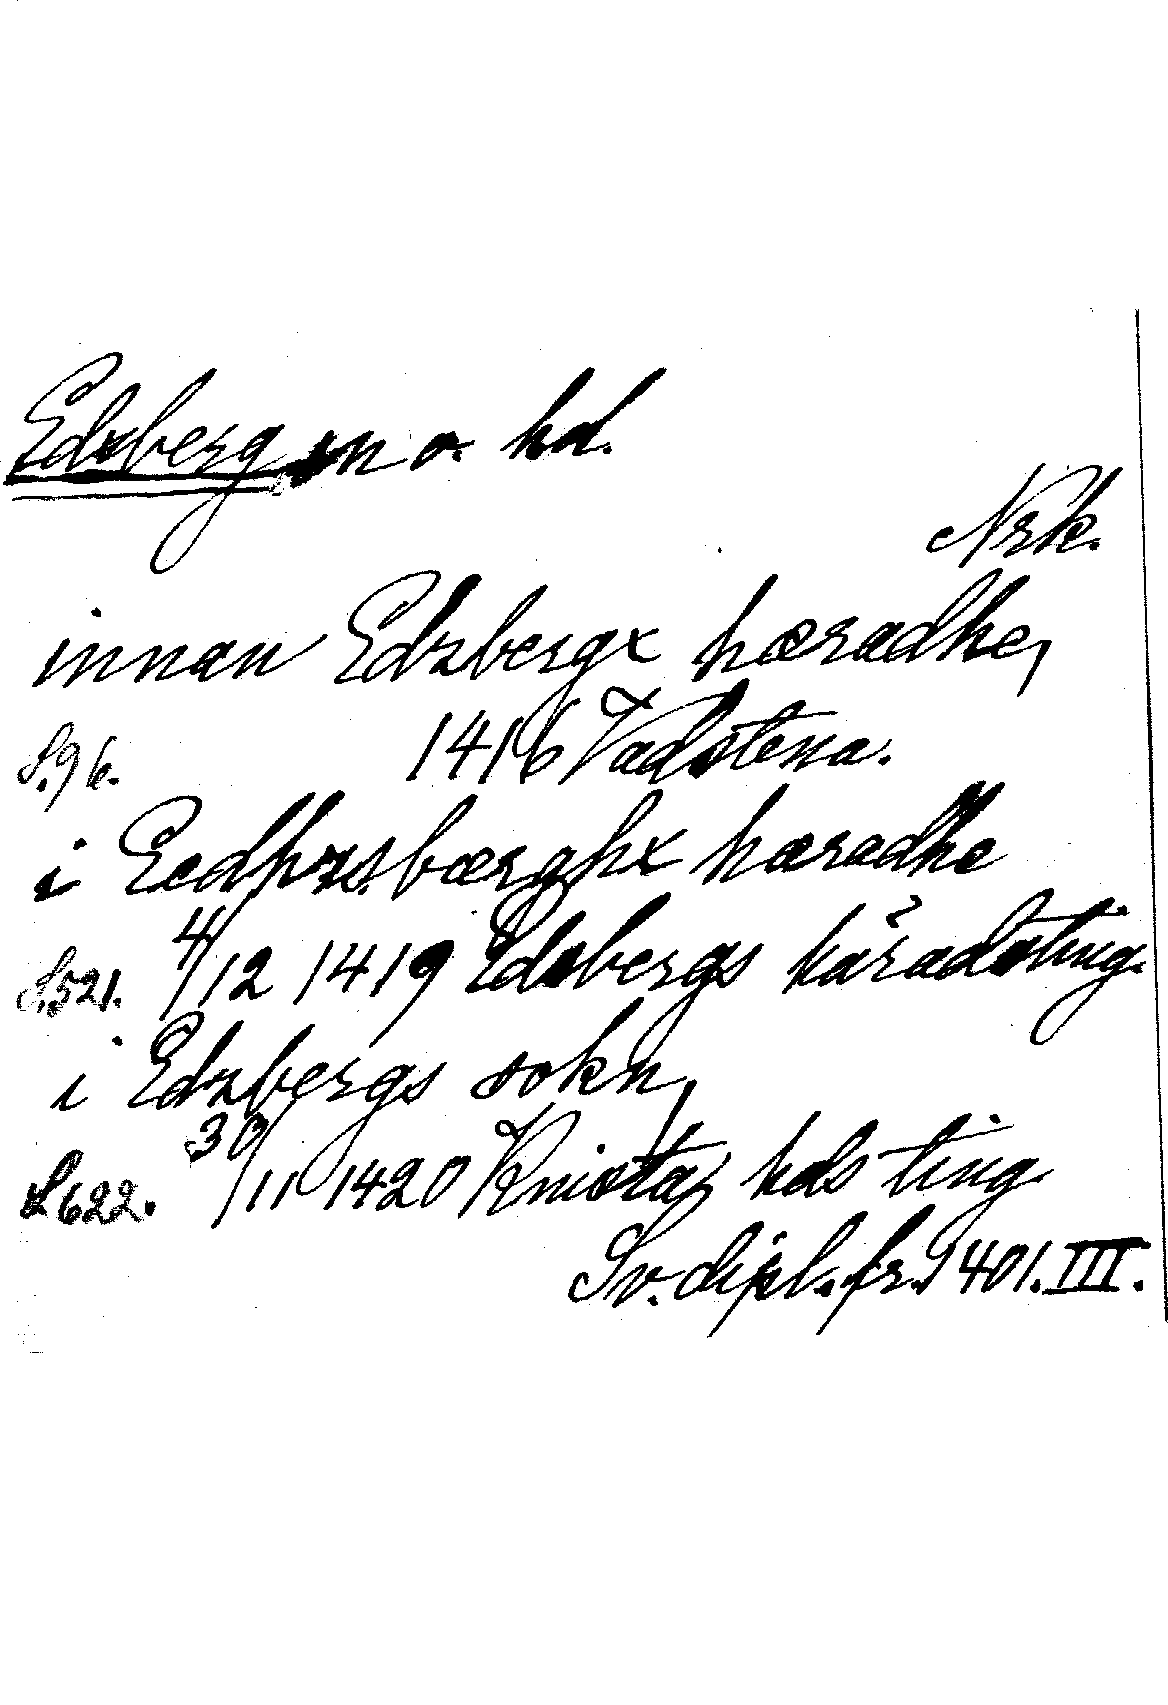 Edsberg sn o. hd.
Nrk.
innan Edzbergx hæradhe,
S. 96. 1416 Vadstena.
i Eedhzsbærghx hæradhe
S. 521. 4/12 1419 Edsbergs häradsting.
i Edzbergs sokn,
S 622. 30/11 1420 Knista, hds ting
Sv. dipl. fr. 1401. III.